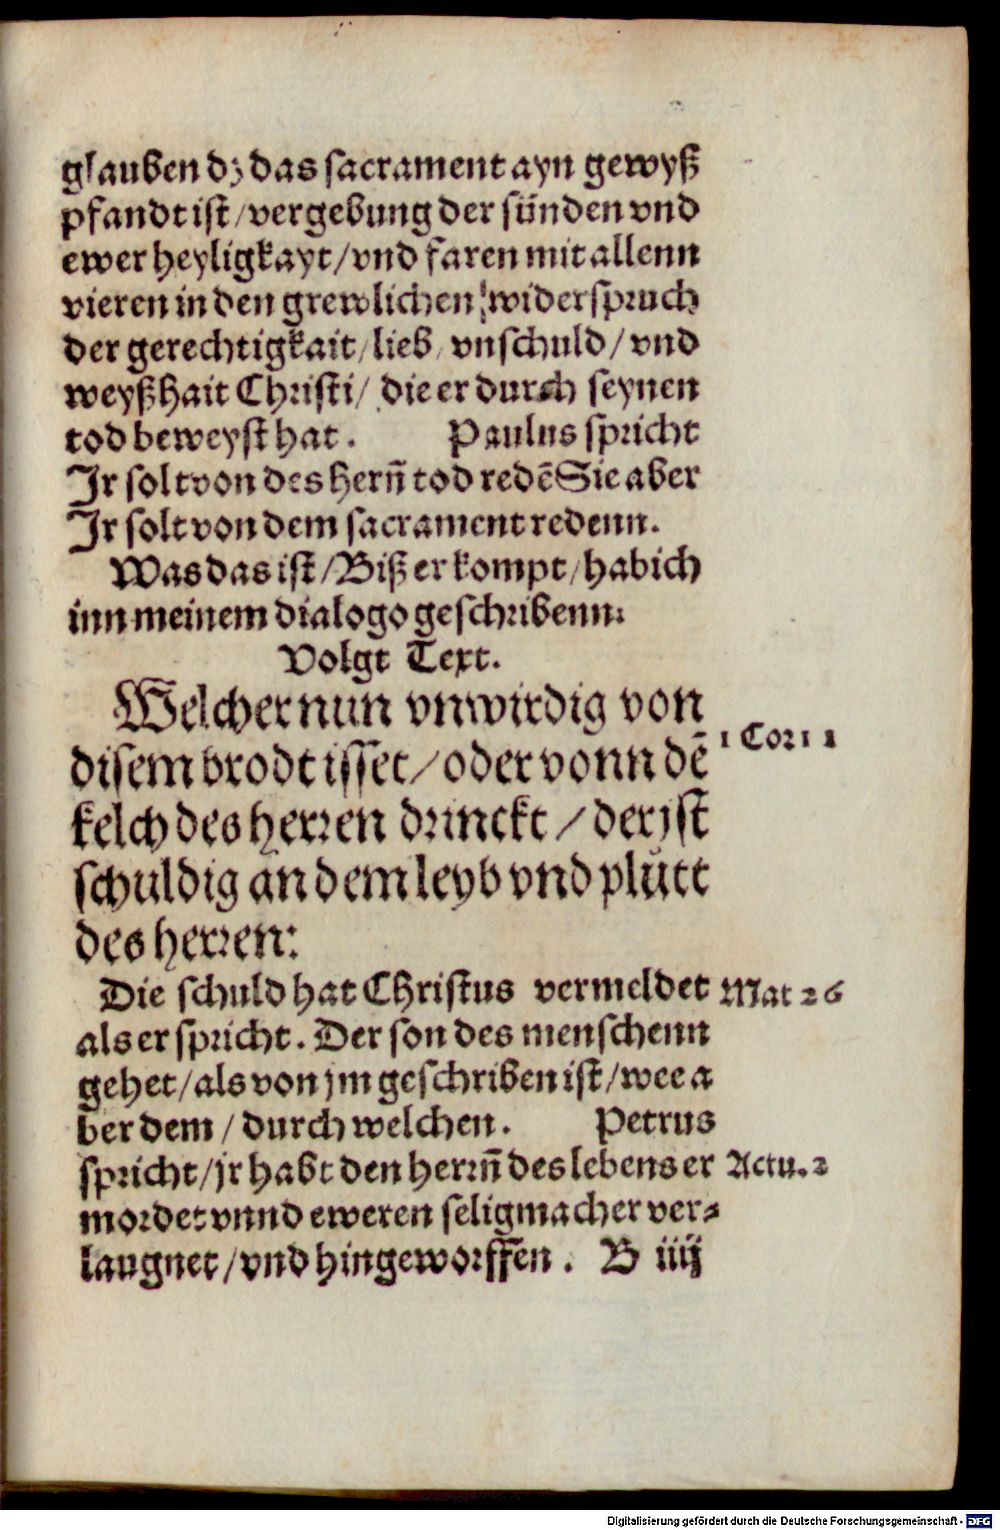 glauben dz das sacrament ayn gewyß
pfandt ist / vergebung der sünden vnd
ewer heyligkayt / vnd faren mit allenn
vieren in den grewlichen widerspruch
der gerechtigkait / lieb / vnschuld / vnd
weyßhait Christi / die er durch seynen
tod beweyst hat . Paulus spricht
Jr solt von des herñ tod redē Sie aber
Jr solt von dem sacrament redenn.
Was das ist / Biß er kompt / hab ich
inn meinem dialogo geschribenn:
Volgt Text.
Welcher nun vnwirdig von
disem brodt isset / oder vonn dē
1 Cori 1
kelch des herren drinckt / der jst
schuldig an dem leyb vnd plůtt
des herren:
Die schuld hat Christus vermeldet
Mat 26
als er spricht. Der son des menschenn
gehet / als von jm geschriben ist / wee a
ber dem / durch welchen . Petrus
spricht / jr habt den herrñ des lebens er
Actu. 2
mordet vnnd eweren seligmacher ver⸗
laugnet / vnd hingeworffen . B iiij
Digitalisierung gefördert durch die Deutsche Forschungsgemeinschaft - DFG